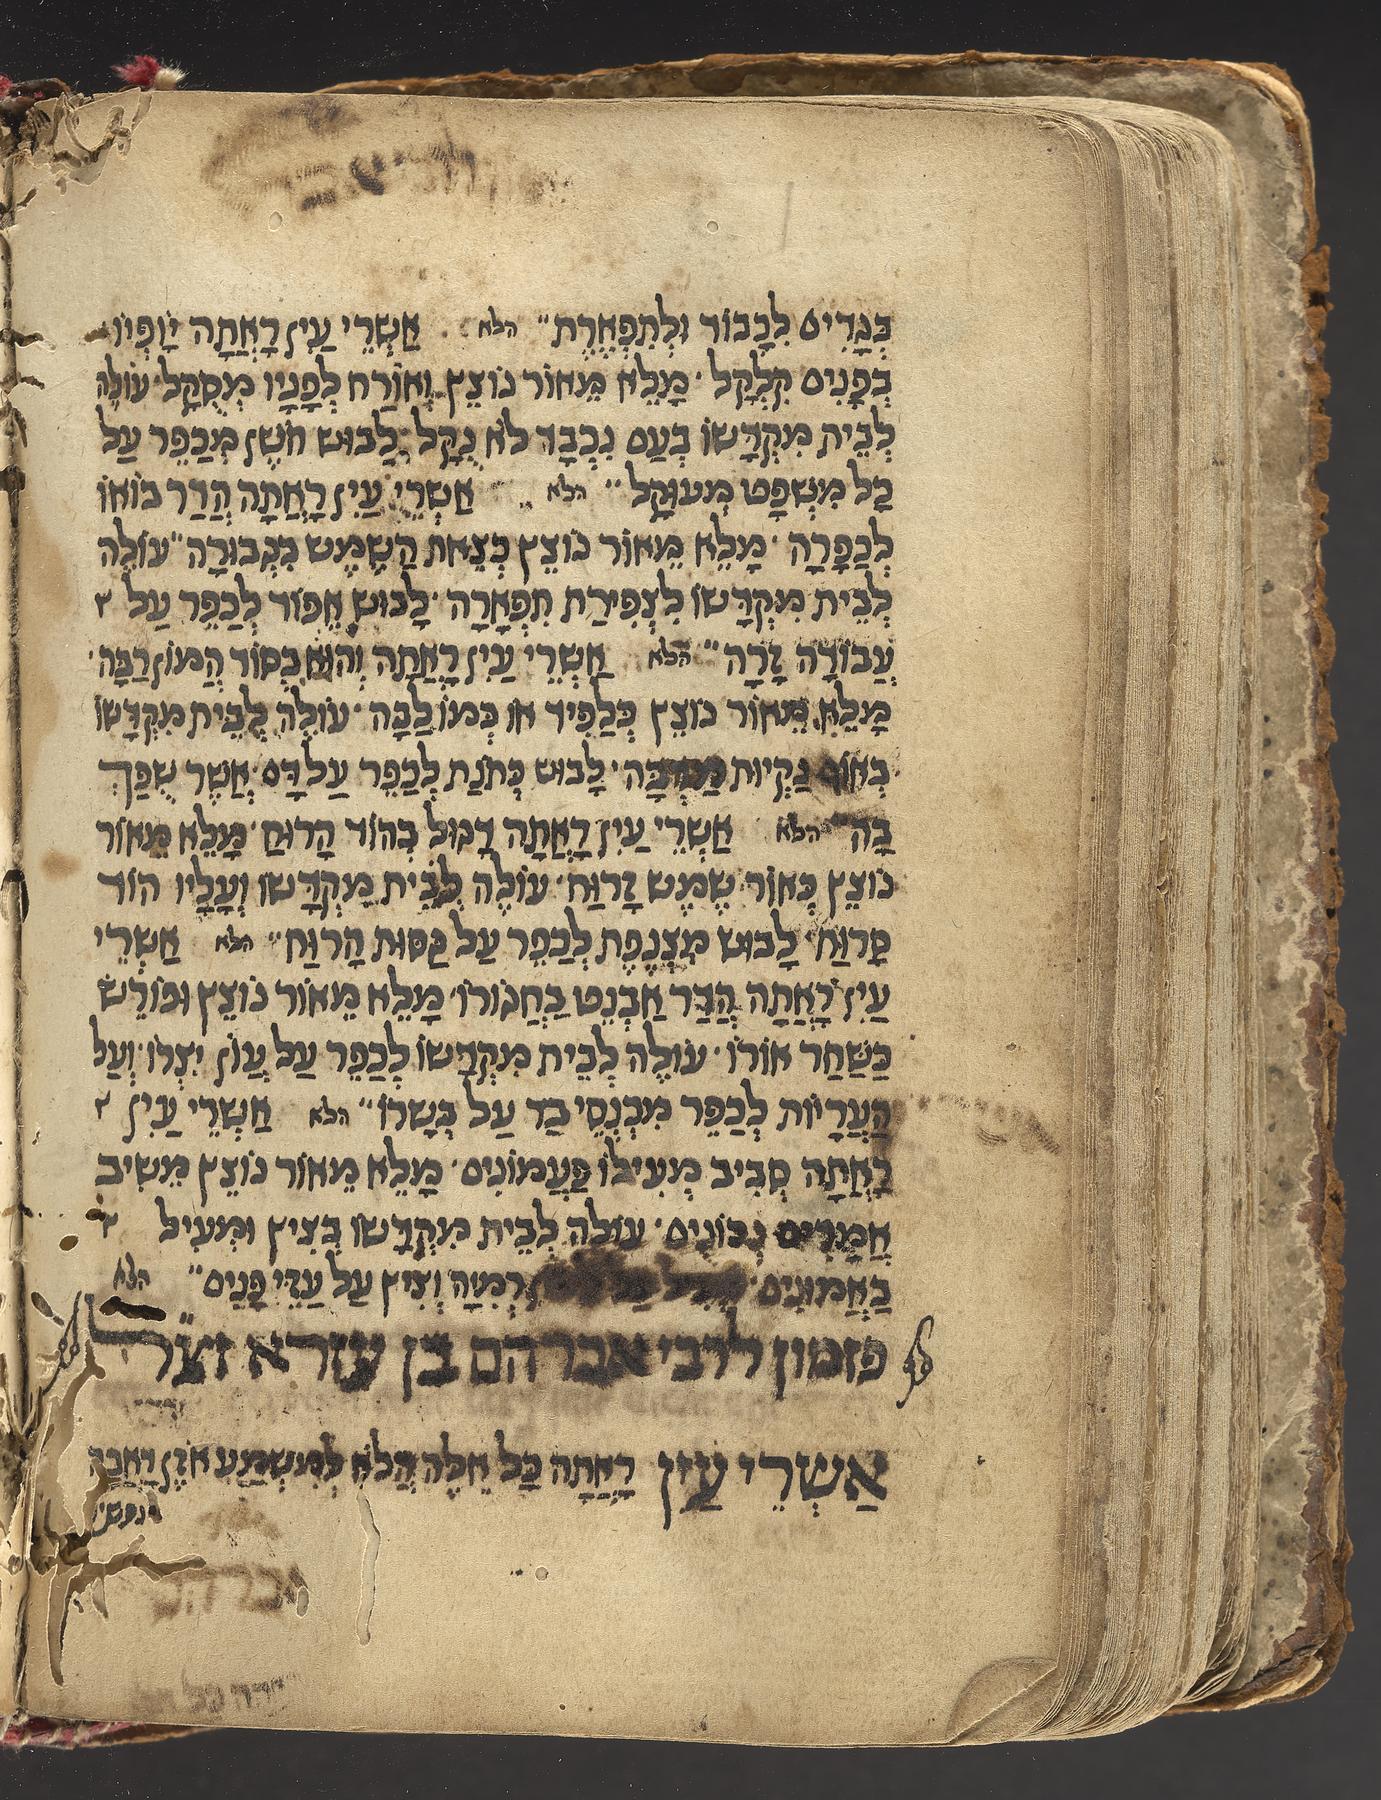 בְּגָדִים לְכָבוֹד וּלְתִפְאֶרֶת״ הלא אַשְׁרֵי עַיִן רָאֲתָה יָופְיוֹ
בְּפָנִים קִלְקַל ׳ מָלֵא מֵאוֹר נוֹצֵץ וְאוֹרַח לְפָנָיו מְסֻקָל ׳ עוֹלֶה
לְבֵית מִקְדָּשׁוֹ בְּעַם נִכְבָּד לֹא נָקֵל ׳ לָבוּשׁ חֹשֶׁן מְכַפֵּר עַל
כָּל מִשְׁפָּט מְעוּקָל ״ הלא אַשְׁרֵי עַיִן רָאֲתָה הֲדַר בּוֹאוֹ
לְכַפָּרָה ׳ מָלֵא מֵאוֹר נוֹצֵץ כְּצֵאת הַשֶּׁמֶשׁ בִּגְבוּרָה ״ עוֹלֶה
לְבֵית מִקְדָּשׁוֹ לִצְפִירַת תִּפְאָרָה ׳ לָבוּשׁ אֵפוֹד לְכַפֵּר עַל
עֲבוֹדָה זָרָה ״ הלא אַשְׁרֵי עַיִן רָאֲתָה וְהוּא בְּסוֹד הֲמוֹן רַבָּה ׳
מָלֵא מֵאוֹר נוֹצֵץ כְּלַפִּיד אוֹ כְּמוֹ לַבָּה ׳ עוֹלֶה לְבֵית מִקְדָּשׁוֹ
נַקְיוּת ׳ לָבוּשׁ כְּתֹנֶת לְכַפֵּר עַל דָּם אֲשֶׁר שֻׁפַּךְ
בָּהּ ״ הלא אַשְׁרֵי עַיִן רָאֲתָה דָּגוּל בְּהוֹד הָרוּחַ ׳ מָלֵא מֵאוֹר
נוֹצֵץ כְּאוֹר שֶׁמֶשׁ זָרוּחַ ׳ עוֹלֶה לְבֵית מִקְדָּשׁוֹ וְעָלָיו הוֹד
סָרוּחַ ׳ לָבוּשׁ מִצְנֶפֶת לְכַפֵּר עַל גַּסּוּת הָרוּחַ ״ הלא אַשְׁרֵי
עַיִן רָאֲתָה הֲדַר אַבְנֵט בַּחֲגוֹרוֹ ׳ מָלֵא מֵאוֹר נוֹצֵץ וּפוֹרֵשׂ
כַּשַּׁחַר אוֹרוֹ ׳ עוֹלֶה לְבֵית מִקְדָּשׁוֹ לְכַפֵּר עַל עֲוֹן יִצְרוֹ ׳ וְעַל
הָעֲרָיוֹת לְכַפֵּר מִכְנְסֵי בַד עַל בְּשָׂרוֹ ״ הלא אַשְׁרֵי עַיִן
רָאֲתָה סְבִיב מְעִילוֹ פַּעֲמוֹנִים ׳ מָלֵא מֵאוֹר נוֹצֵץ מֵשִׁיב
אֲמָרִים נְכוֹנִים ׳ עוֹלֶה לְבֵית מִקְדָּשׁוֹ בְּצִיץ וּמְעִיל
בַּאֲמוּנִים ׳ רְמִיָּה וְצִיץ עַל עַזֵּי פָנִים ״ הלא
פזמון לרבי אברהם בן עזרא זצ״ל
אַשְׁרֵי עַיִן רָאֲתָה כָּל אֵלֶּה הֲלֹא לְמִשְׁמַע אֹזֶן דָּאֲבָה
נפשינו